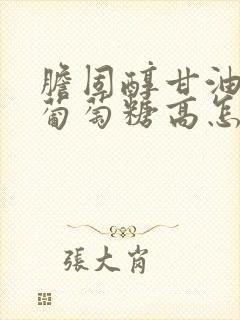 膽固醇甘油
葡萄糖高怎
張大肖